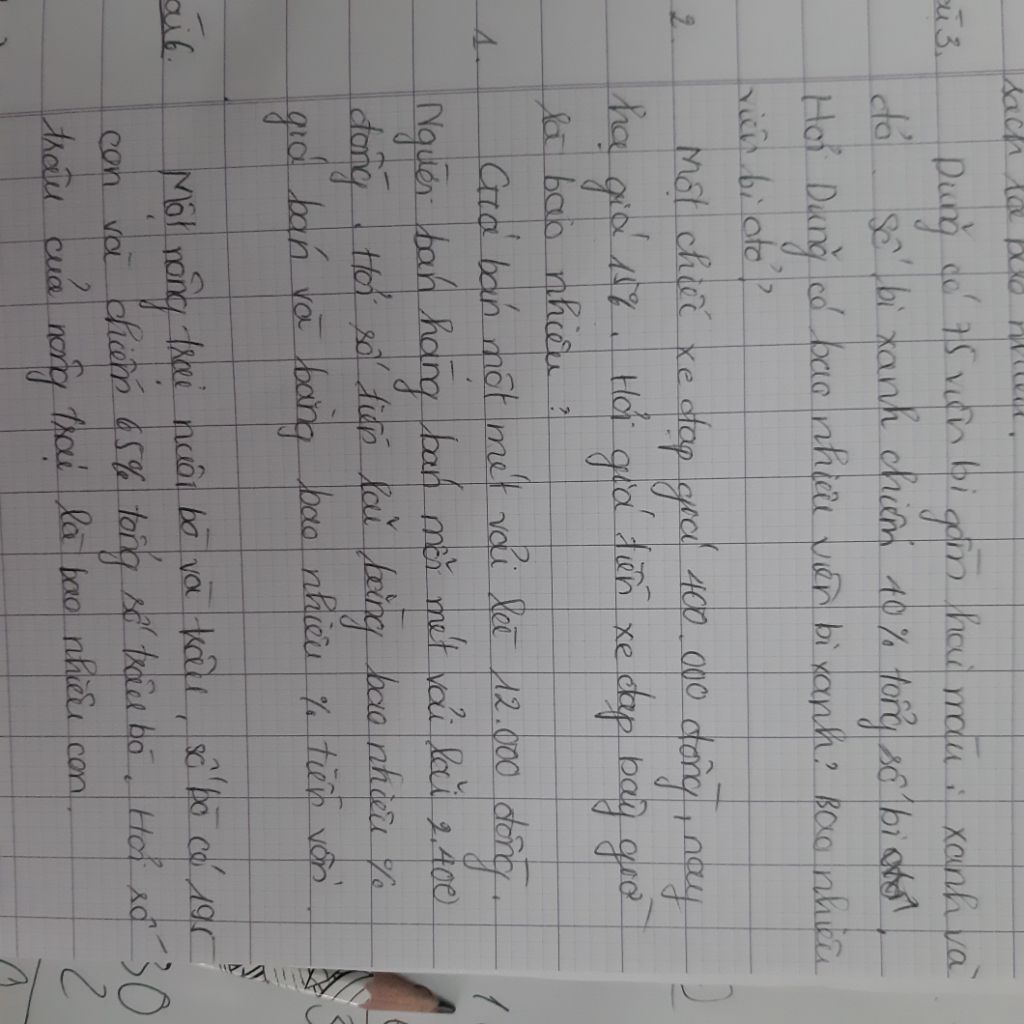 sách là bao nhiêu.
bài 3. Dũng có 75 viên bi gồm hai màu: xanh và
đỏ. Số bi xanh chiếm 40% tổng số bi.
Hỏi Dũng có bao nhiêu viên bi xanh? Bao nhiêu
viên bi đỏ?
2. Một chiếc xe đạp giá 400.000 đồng, nay
hạ giá 15%. Hỏi giá tiền xe đạp bây giờ
là bao nhiêu?
1. Giá bán một mét vải là 12.000 đồng.
Người bán hàng bán mỗi mét vải lãi 2.400
đồng. Hỏi số tiền lãi bằng bao nhiêu %
giá bán và bằng bao nhiêu % tiền vốn.
bài 6. Một nông trại nuôi bò và trâu, số bò có 195
con và chiếm 65% tổng số trâu bò. Hỏi số
trâu của nông trại là bao nhiêu con.
30
2
1